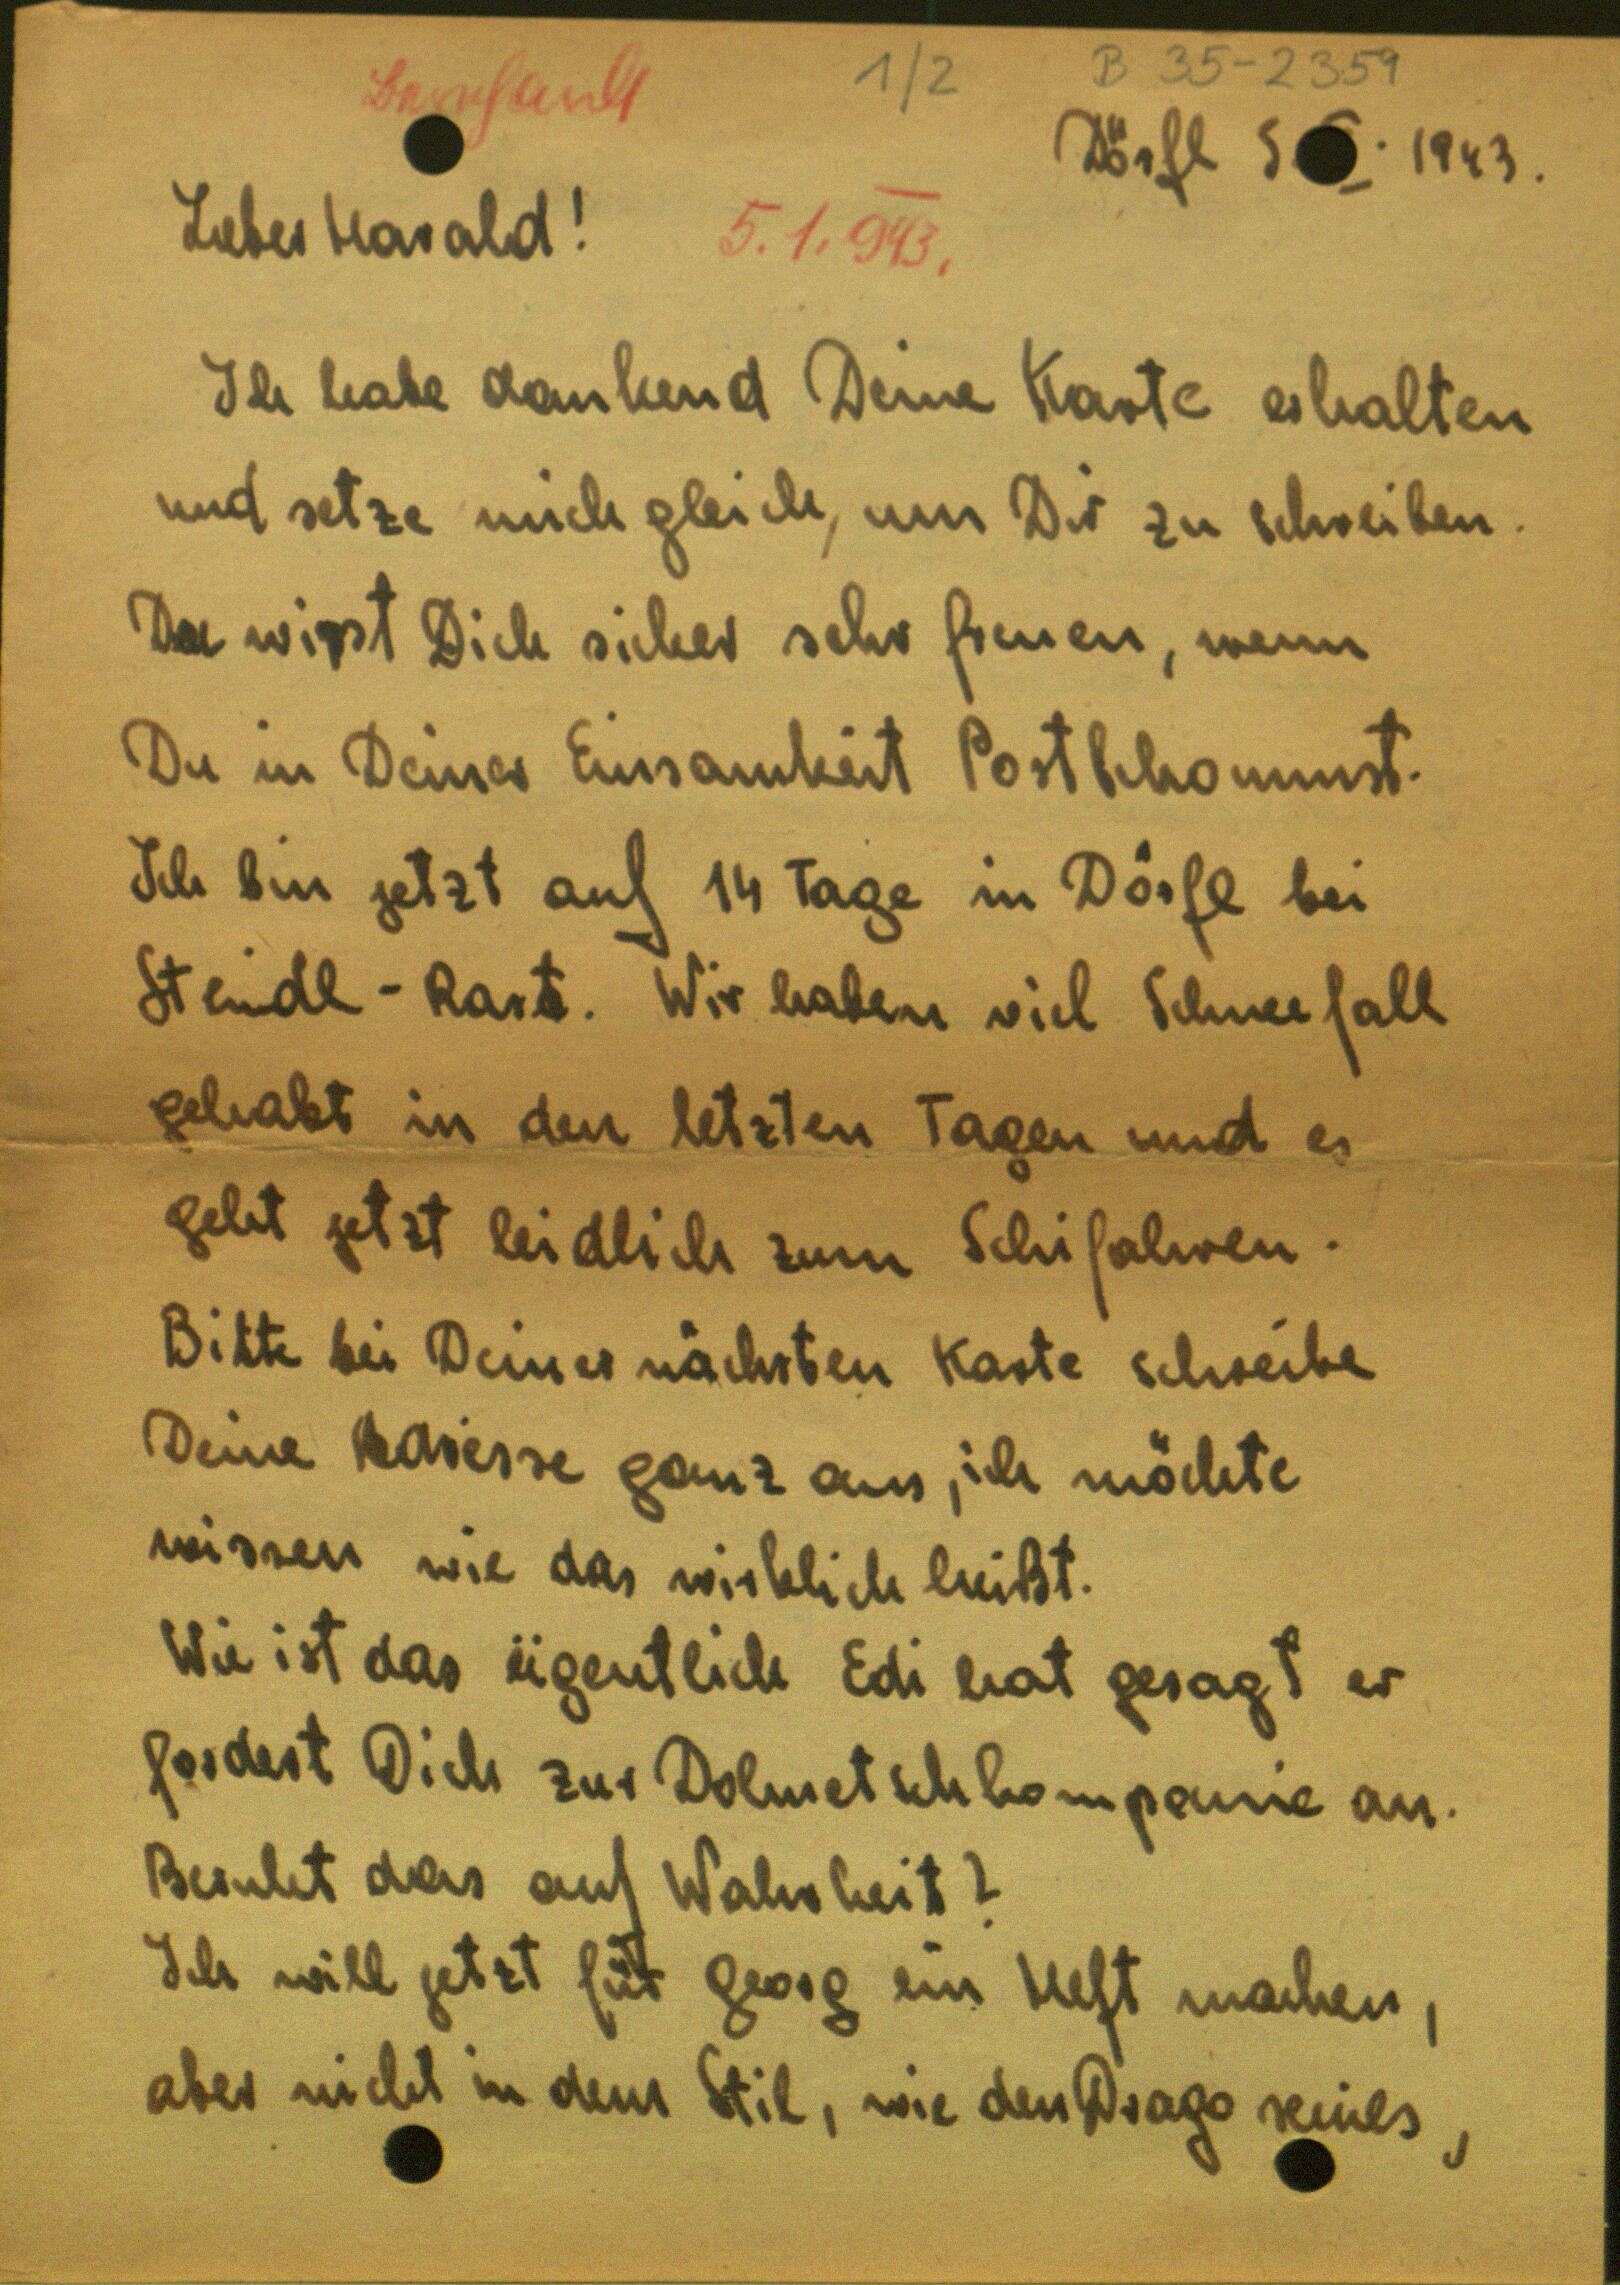 1/2 B 35-2359
Dörfl 5. I. 1943.
Lieber Harald! 5.1.943.
Ich habe dankend Deine Karte erhalten
und setze mich gleich, um Dir zu schreiben.
Du wirst Dich sicher sehr freuen, wenn
Du in Deiner Einsamkeit Post bekommst.
Ich bin jetzt auf 14 Tage in Dörfl bei
Steindl-Rast. Wir haben viel Schneefall
gehabt in den letzten Tagen und es
geht jetzt leidlich zum Schifahren.
Bitte bei Deiner nächsten Karte schreibe
Deine Adresse ganz aus, ich möchte
wissen wie das wirklich heißt.
Wie ist das eigentlich Edi hat gesagt er
fordert Dich zur Dolmetschkompanie an.
Beruht das auf Wahrheit?
Ich will jetzt für Georg ein Heft machen,
aber nicht in dem Stil, wie den Drago seines,